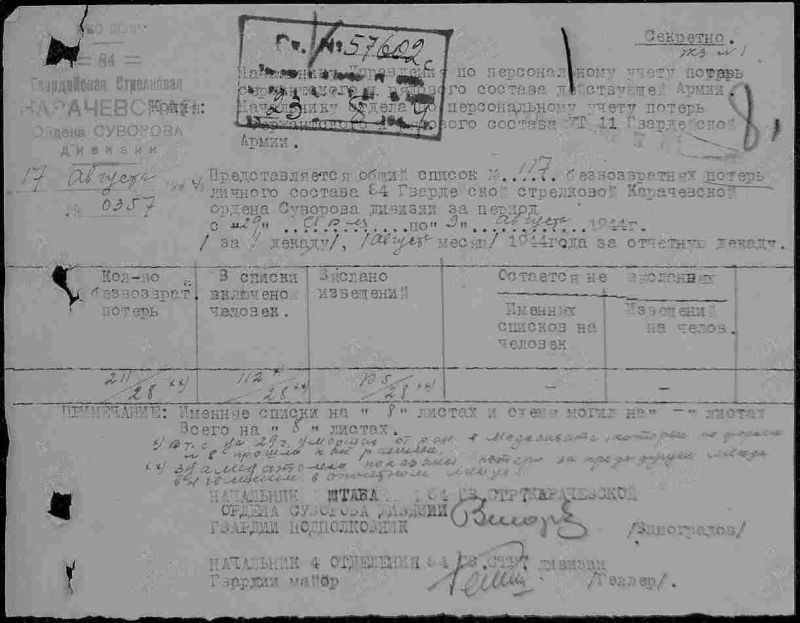 = 84 =
Гвардейская Стрелковая
КАРАЧЕВСКАЯ
Ордена СУВОРОВА
ДИВИЗИИ
17 Августа
№ 0357
Вх. № 57602с
25 8 4
Секретно.
экз № 1
Начальнику Управления по персональному учету потерь
сержантского и рядового состава действующей Армии
Копия: Начальнику отдела по персональному учету потерь
сержантского и рядового состава 11 Гвардейской
Армии.
Представляется общий список № 117 безвозвратных потерь
личного состава 84 Гвардейской стрелковой Карачевской
ордена Суворова дивизии за период
с "29" по "9" августа 1944г.
/за 1 декаду/, /август месяц/ 1944года за отчетную декаду.
Кол-во безвозврат. потерь
В списки включено человек.
Выслано извещений
Остается не высланных
Именных списков на человек
Извещений на челов.
211/28 хх)
112/28 хх)
105/28 хх)
–
–
ПРИМЕЧАНИЕ: Именные списки на " 8" листах и схема могил на" –" листах
Всего на " 8" листах.
умерших от ран в Медсанбате, которые по форме
№ 8 прошли как раненые.
хх) Знаменателем показаны потери за предыдущие месяца
НАЧАЛЬНИК ШТАБА 84 ГВ.СТР.КАРАЧЕВСКОЙ
ОРДЕНА СУВОРОВА ДИВИЗИИ
ГВАРДИИ ПОДПОЛКОВНИК /Виноградов/
НАЧАЛЬНИК 4 ОТДЕЛЕНИЯ 84 ГВ.СТР. дивизии
Гвардии майор /Геллер/.